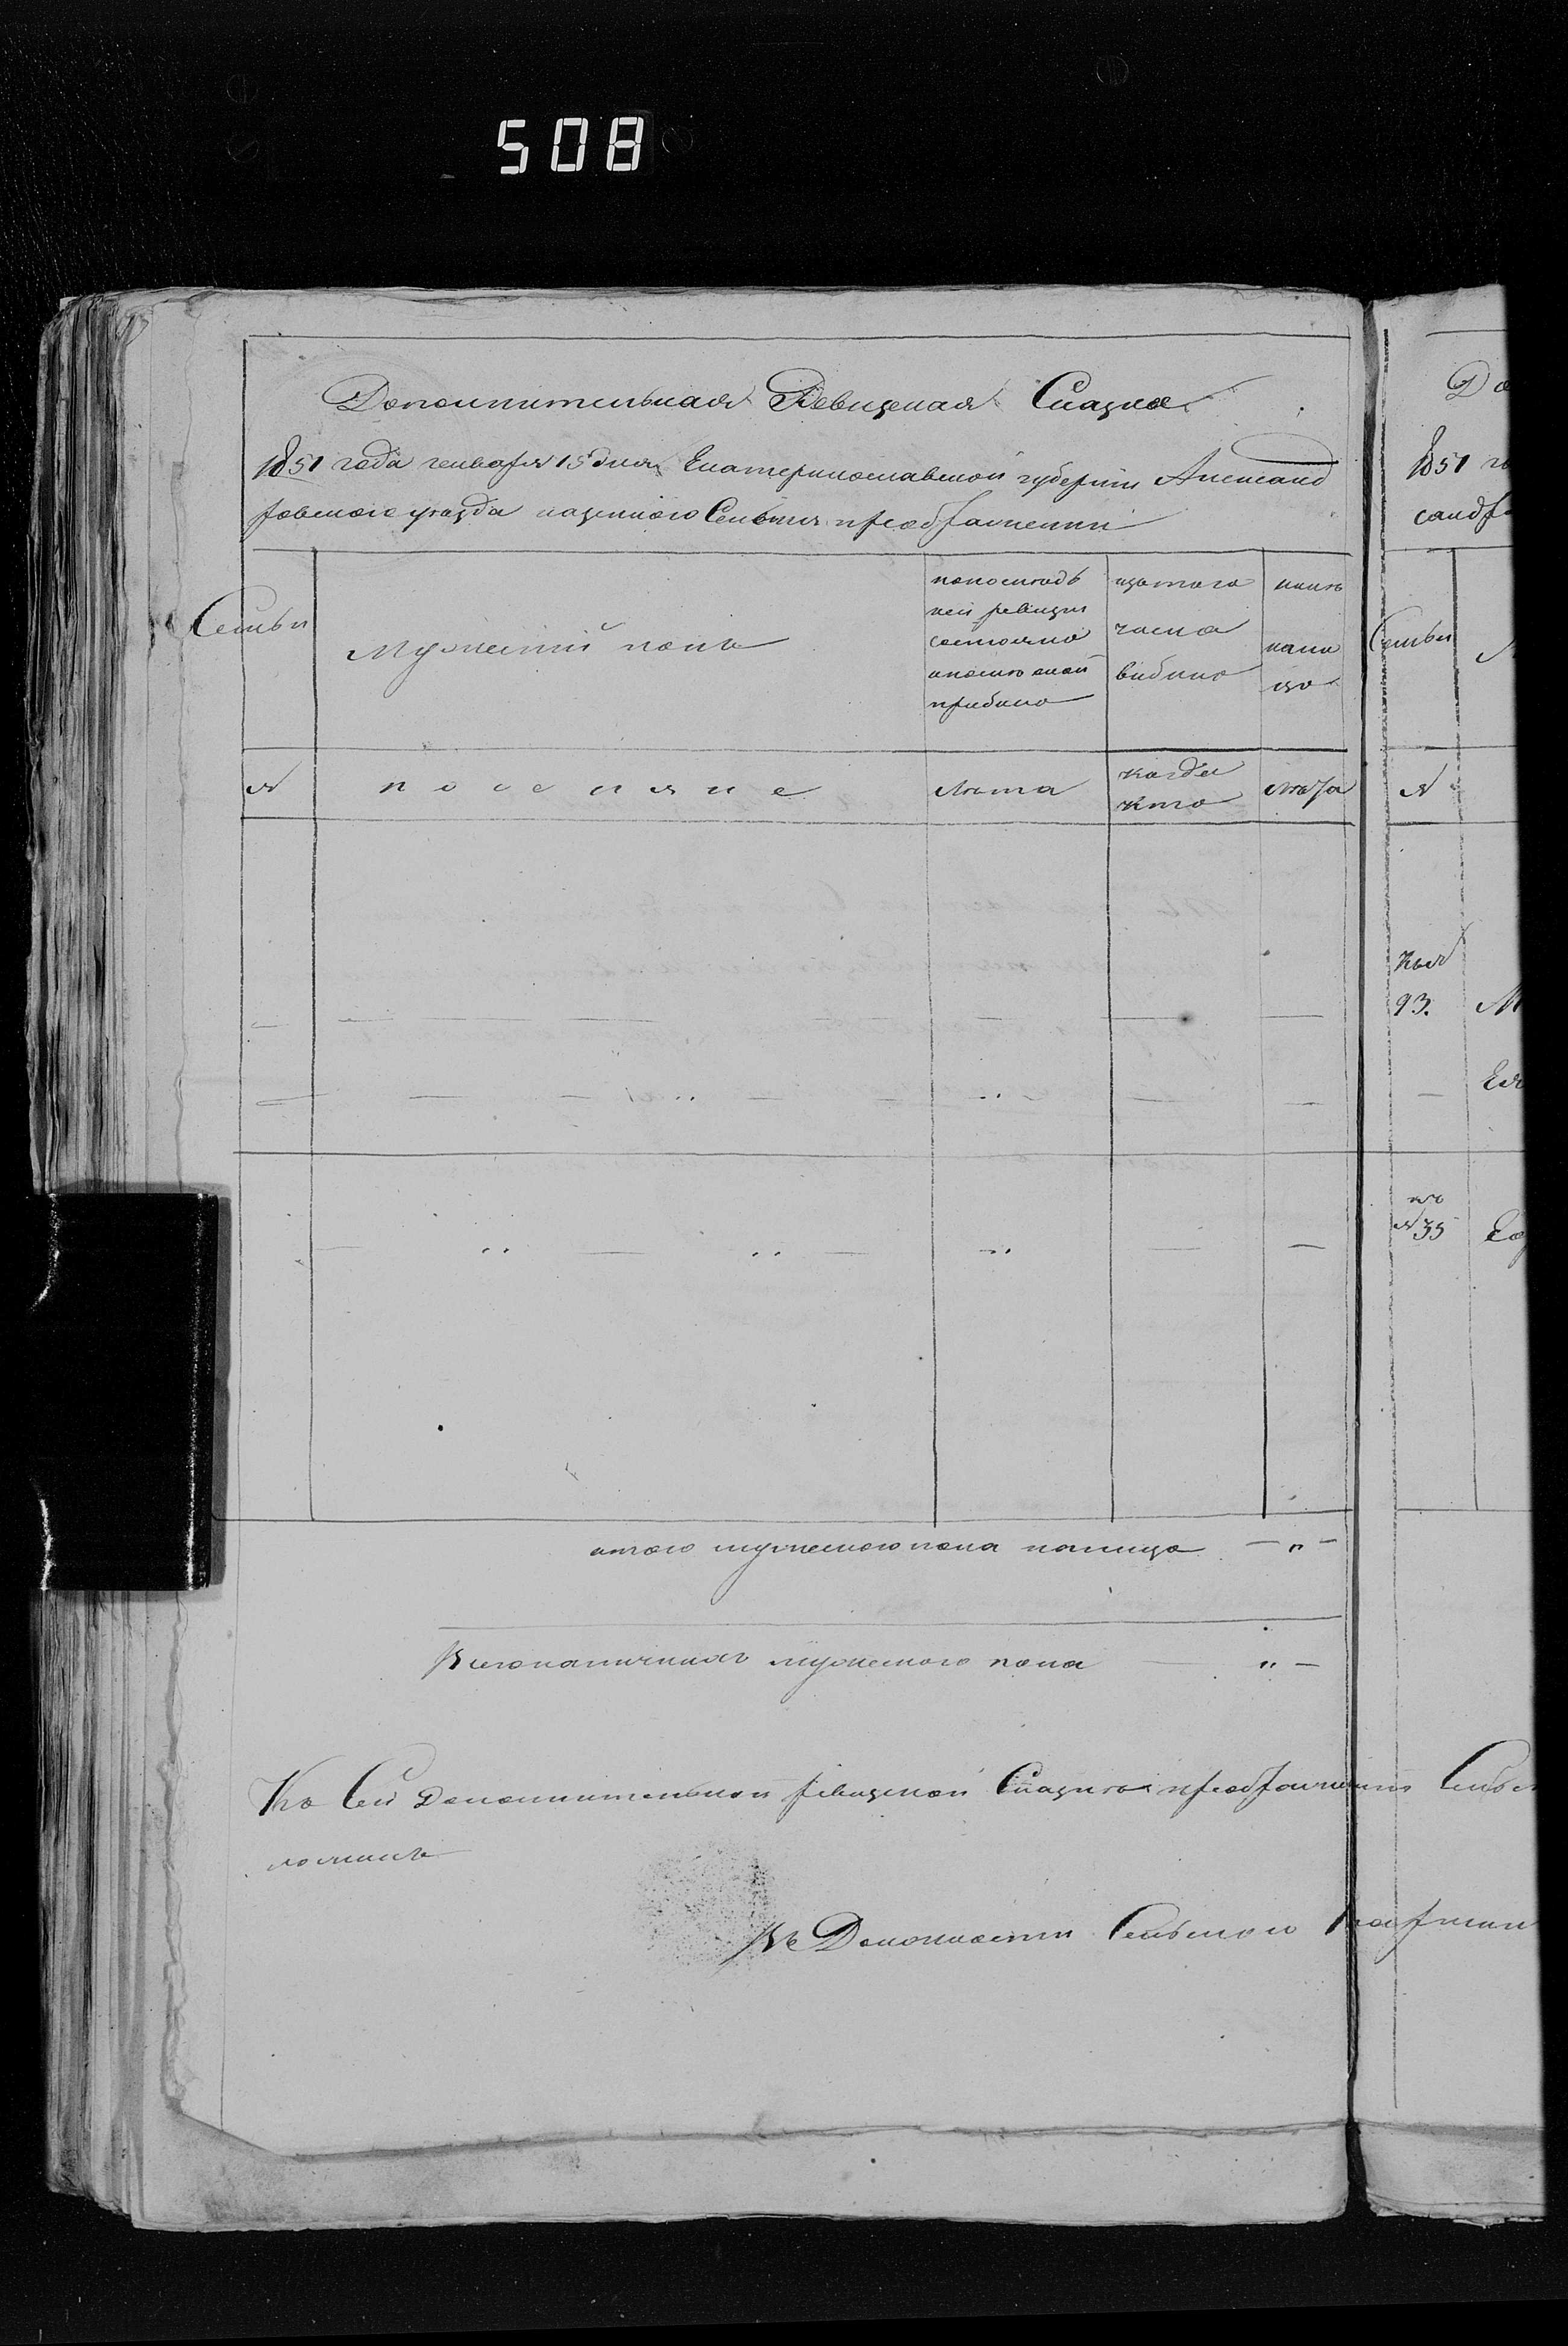 508
Дополнительная Ревизская Сказка
1851 года генваря 15 дня Екатеринославской губернии Александ
ровского уезда казенного Селения преображенки
Семьи
Мужеский полъ
попослѣдъ
ней ревизіи
состояло
и после оной
прибыло
изътого
числа
выбыло
нынѣ
нали
цо
№
поселяне
лѣта
когда
кто
лѣта
итого мужеского пола налицо — " —
Всегоналичныхъ мужеского пола — " —
Ко Сей дополнительной ревизской Сказкѣ преображенки Сельс
ложилъ
В Должности Сельского
До
1851 го
сандр
Семьи
М
№
93.
М
№35